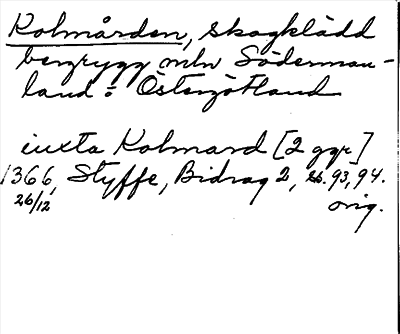 Kolmården, skogklädd
bergrygg mln Söderman-
land o Östergötland
iuxta Kolmard [2 ggr]
1366, Styffe, Bidrag 2, s. 93, 94.
26/12 orig.